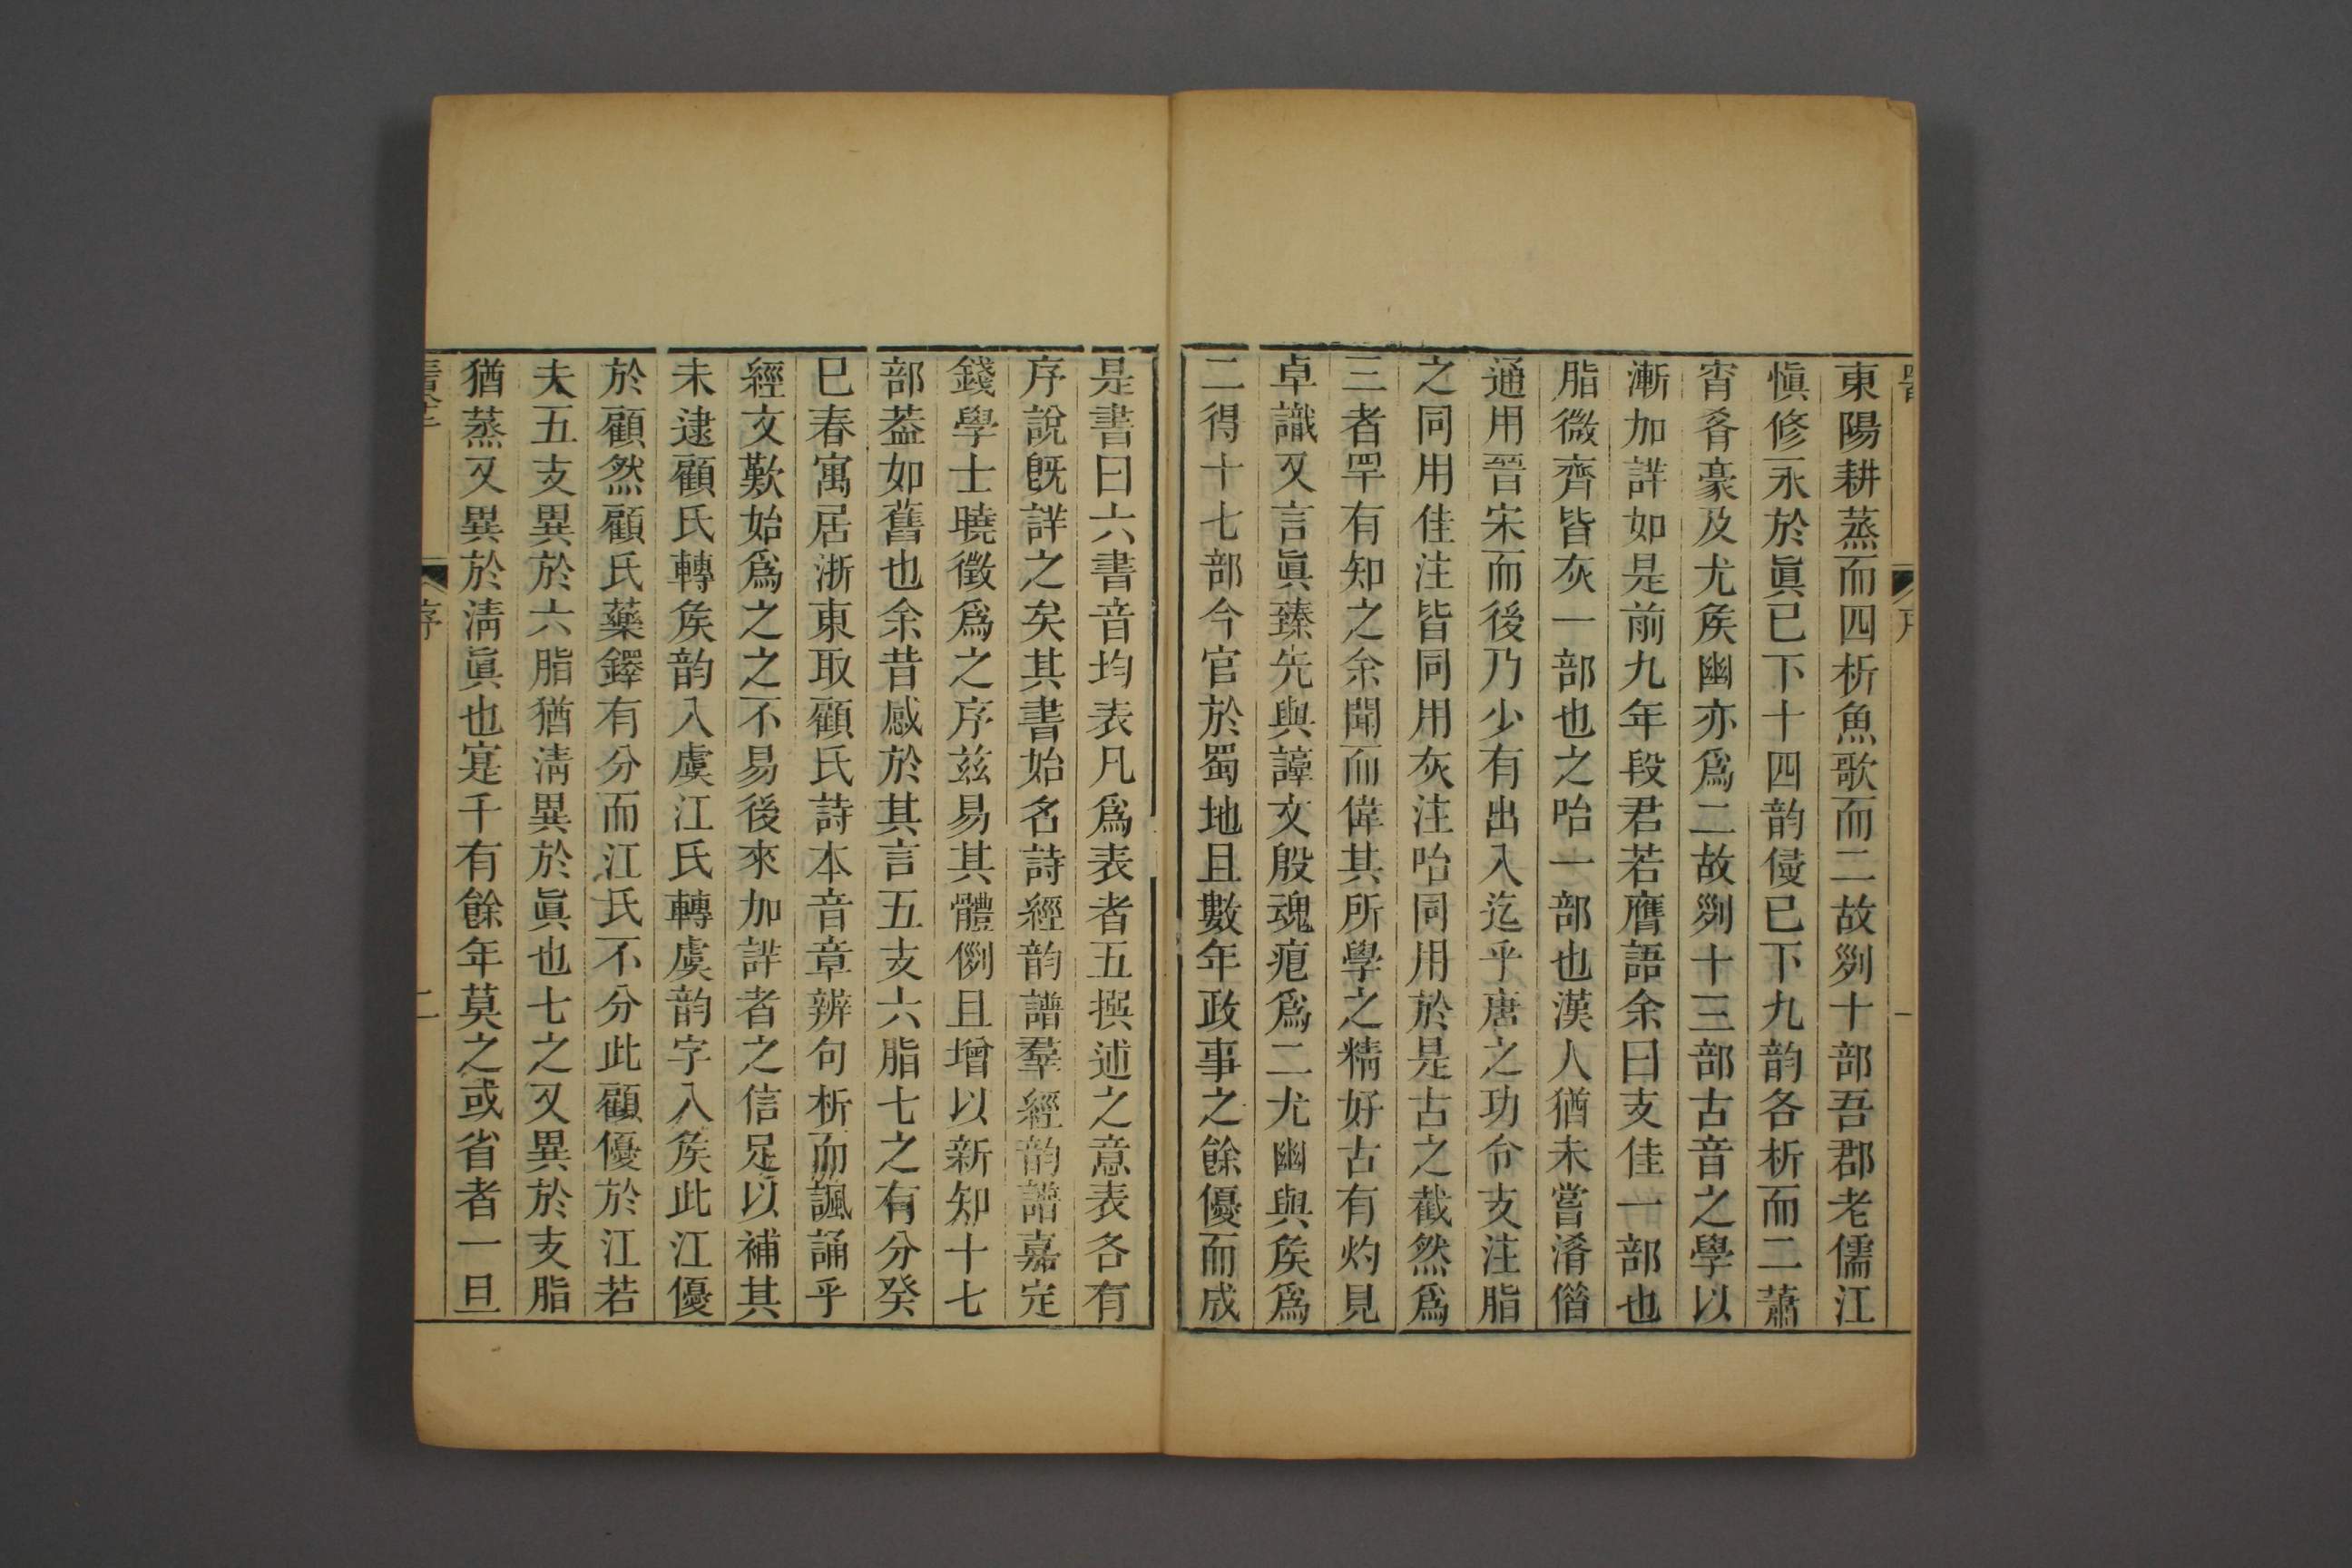 東陽耕蒸而四析魚歌而二故㓝十部吾郡老儒江
慎修永於眞已下十四韵侵已下九韵各析而二蕭
宵肴豪及尤矦幽亦爲二故㓝十三部古音之學以
漸加詳如是前九年段君若膺語余曰支佳一部也
脂微齊皆灰一部也之咍一部也漢人猶未嘗淆僣
通用晉宋而後乃少有出入迄乎唐之功令支注脂
之同用佳注皆同用灰注咍同用於是古之截然爲
三者罕有知之余聞而偉其所學之精好古有灼見
卓識又言眞臻先與諄文殷魂痕爲二尤幽與矦爲
二得十七部今官於蜀地且數年政事之餘優而成
是書曰六書音均表凡爲表者五撰述之意表各有
序說旣詳之矣其書始名詩經韵譜羣經韵譜嘉定
錢學士曉徵爲之序兹易其體例且增以新知十七
部葢如舊也余昔感於其言五支六脂七之有分癸
巳春寓居浙東取顧氏詩本音章辨句析而諷誦乎
經文歎始爲之之不易後來加詳者之信足以補其
未逮顧氏轉矦韵入虞江氏轉虞韵字入矦此江優
於顧然顧氏藥鐸有分而江氏不分此顧優於江若
夫五支異於六脂猶淸異於眞也七之又異於支脂
猶蒸又異於淸眞也寔千有餘年莫之或省者一旦
序
二